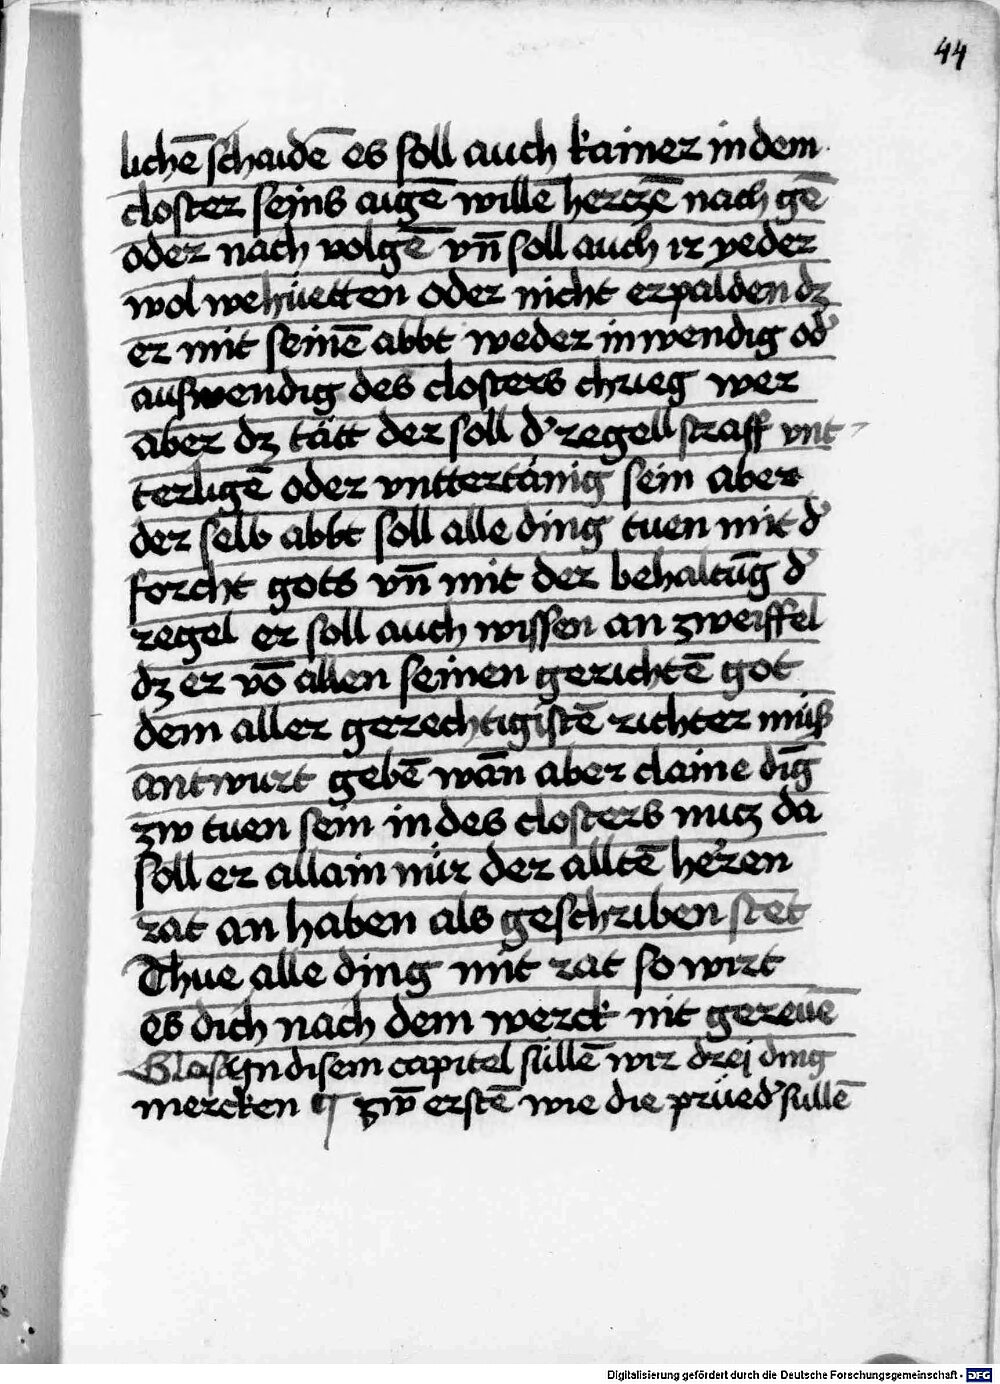 44
lichē schaidē es soll auch kainer in dem
closter seins aigē willē herczē nach gē
oder nach volgē vn̄ soll auch ir yeder
wol wehüetten oder nicht erpalden dz
er mit seinē abbt weder inwendig od̕
auswendig des closters chrieg wer
aber dz tätt der soll d̕ regell straff vnt
terligē oder vnttertänig sein aber
der selb abbt soll alle ding tuen mit d̕
forcht gots vn̄ mit der behaltūg d̕
regel er soll auch wissen an zweiffel
dz er vō allen seinen gerichtē got
dem aller gerechtigistē richter müß
antwurt gebē wān aber claine dīg
zw tuen sein in des closters nucz da
soll er allain nür der alltē herren
rat an haben als geschriben stet
Thue alle ding mit rat so wirt
es dich nach dem werck nit gereuē
Glosa In disem capitel süllē wir drej ding
mercken ¶ zw̄ erstē wie die prüed̕ süllē
Digitalisierung gefördert durch die Deutsche Forschungsgemeinschaft - DFG